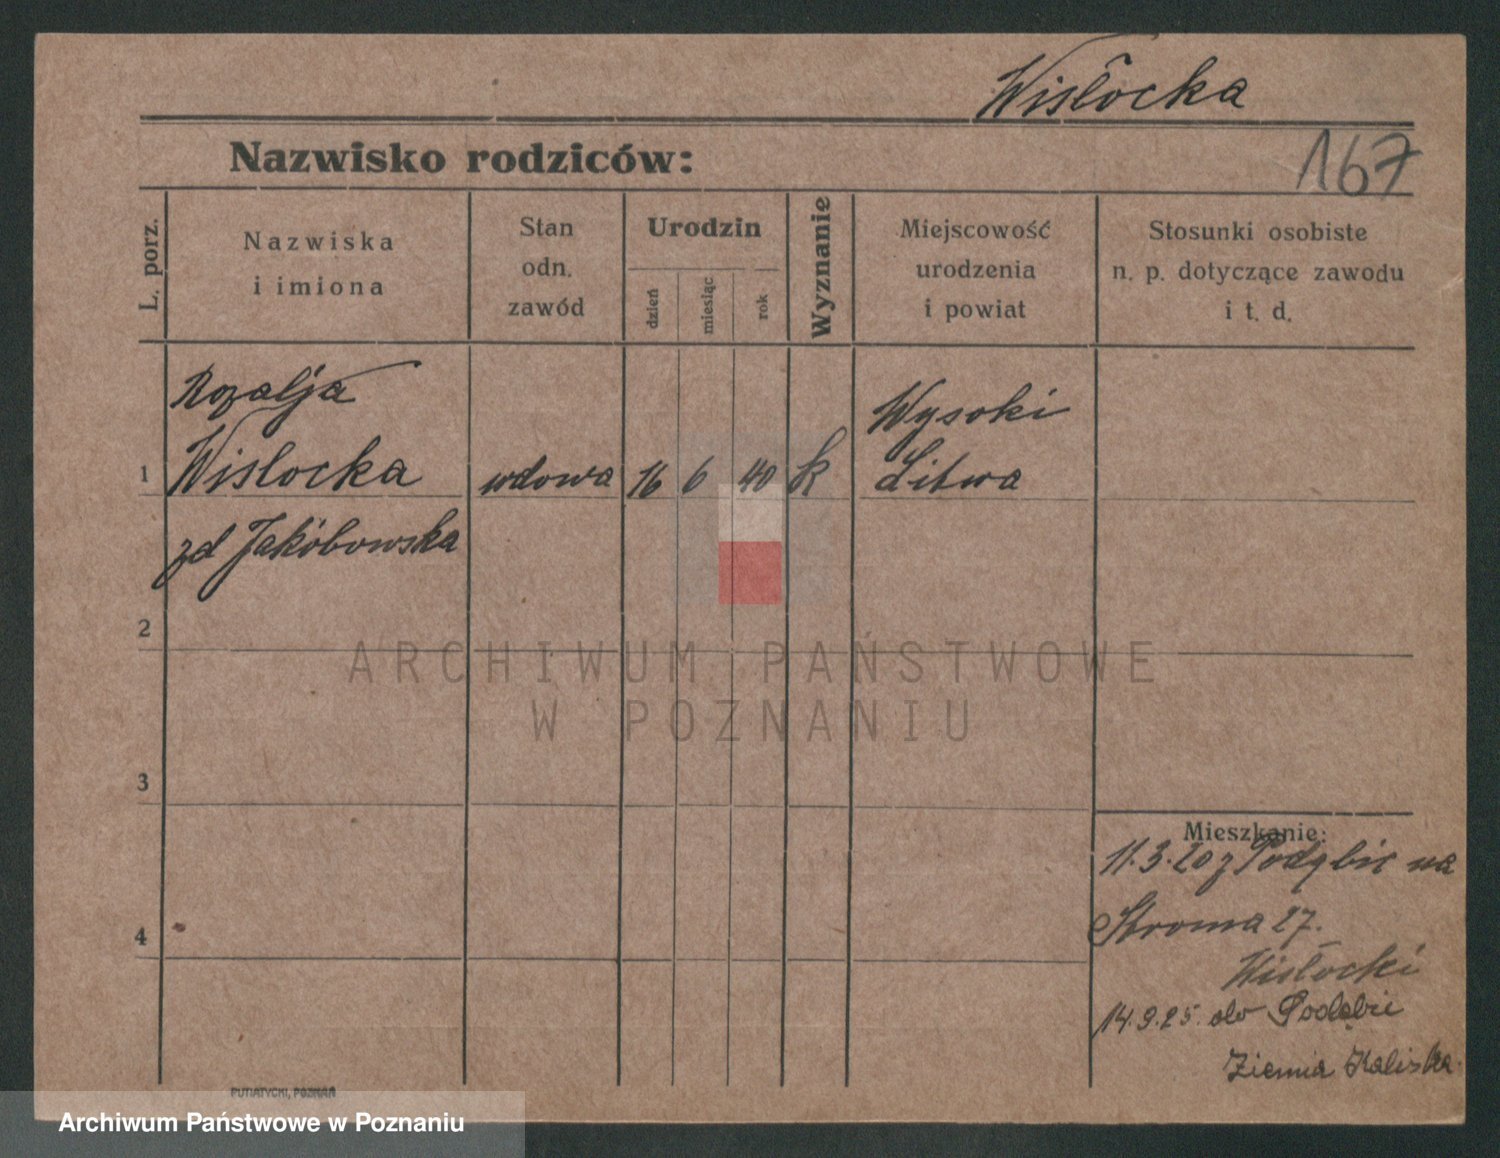 Wisłocka
Nazwisko rodziców:
167
L. porz.
Nazwiska
i imiona
Stan
odn.
zawód
Urodzin
dzień
miesiąc
rok
Wyznanie
Miejscowość
urodzenia
i powiat
Stosunki osobiste
n. p. dotyczące zawodu
i t. d.
Rozalja
1 Wisłocka wdowa 16 6 40 k
Wysoki
Litwa
zd Jakóbowska
2
3
4
Mieszkanie:
11.3.20 z Podębic na
Stroma 27.
Wisłocki
14.9.25. do Podębic
Ziemia Kaliska.
PUTIATYCKI, POZNAŃ
ARCHIWUM PAŃSTWOWE
W POZNANIU
Archiwum Państwowe w Poznaniu